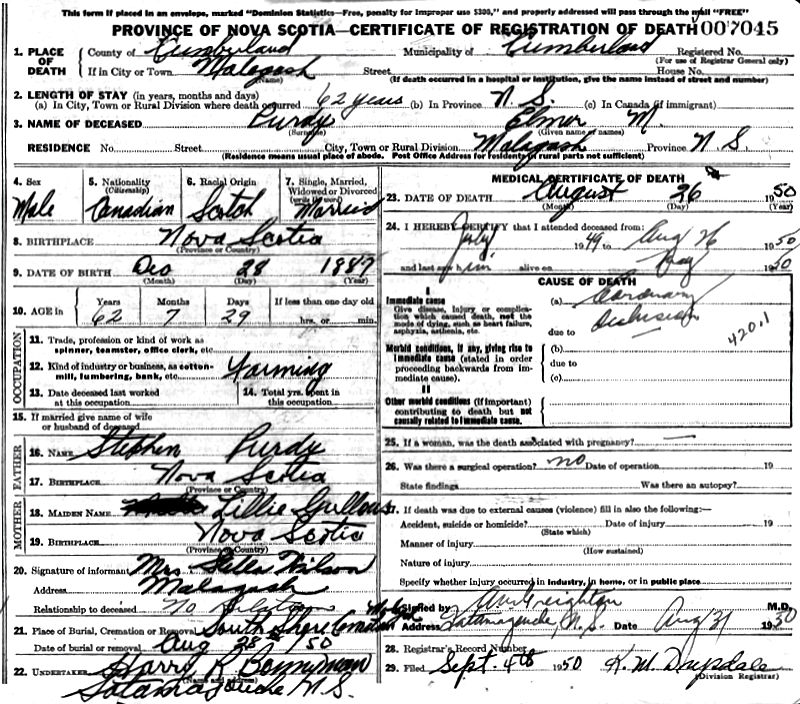 This form if placed in an envelope, marked "Dominion Statistics—Free, penalty for improper use $300," and properly addressed will pass through the mail "FREE"
PROVINCE OF NOVA SCOTIA—CERTIFICATE OF REGISTRATION OF DEATH 007045
1. PLACE OF DEATH County of Cumberland Municipality of Cumberland Registered No.
(For use of Registrar General only)
If in City or Town Malagash Street House No.
(Name) (If death occurred in a hospital or institution, give the name instead of street and number)
2. LENGTH OF STAY (in years, months and days)
(a) In City, Town or Rural Division where death occurred 62 years (b) In Province N.S. (c) In Canada (if immigrant)
3. NAME OF DECEASED Purdy Elmer M.
(Surname) (Given name or names)
RESIDENCE No. Street City, Town or Rural Division Malagash Province N.S.
(Residence means usual place of abode. Post Office Address for residents in rural parts not sufficient)
4. Sex Male
5. Nationality (Citizenship) Canadian
6. Racial Origin Scotch
7. Single, Married, Widowed or Divorced (write the word) Married
8. BIRTHPLACE Nova Scotia
(Province or Country)
9. DATE OF BIRTH Dec 28 1887
(Month) (Day) (Year)
10. AGE in Years Months Days If less than one day old
62 7 29 hrs. or min.
OCCUPATION
11. Trade, profession or kind of work as spinner, teamster, office clerk, etc.
12. Kind of industry or business, as cotton-mill, lumbering, bank, etc. Farming
13. Date deceased last worked at this occupation
14. Total yrs. spent in this occupation
15. If married give name of wife or husband of deceased
FATHER
16. NAME Stephen Purdy
17. BIRTHPLACE Nova Scotia
(Province or Country)
MOTHER
18. MAIDEN NAME Lillie
19. BIRTHPLACE Nova Scotia
(Province or Country)
20. Signature of informant Mrs Stella Wilson
Address Malagash
Relationship to deceased No
21. Place of Burial, Cremation or Removal South Shore
Date of burial or removal Aug 28 1950
22. UNDERTAKER Harry R Bonnyman
(Name and address)
Tatamagouche N S.
MEDICAL CERTIFICATE OF DEATH
23. DATE OF DEATH August 26 1950
(Month) (Day) (Year)
24. I HEREBY CERTIFY that I attended deceased from:
July 1949 to Aug 26 1950
and last saw him alive on 1950
CAUSE OF DEATH
I
Immediate cause
Give disease, injury or complication which caused death, not the mode of dying, such as heart failure, asphyxia, asthenia, etc.
(a) Coronary
Occlusion
due to
420.1
Morbid conditions, if any, giving rise to immediate cause (stated in order proceeding backwards from immediate cause).
(b)
due to
(c)
II
Other morbid conditions (if important) contributing to death but not causally related to immediate cause.
25. If a woman, was the death associated with pregnancy? —
26. Was there a surgical operation? no Date of operation 19
State findings Was there an autopsy?
27. If death was due to external causes (violence) fill in also the following:—
Accident, suicide or homicide? Date of injury 19
(State which)
Manner of injury
(How sustained)
Nature of injury
Specify whether injury occurred in industry, in home, or in public place
Signed by Creighton M.D.
Address Tatamagouche, N.S. Date Aug 31 1950
28. Registrar's Record Number
29. Filed Sept. 4th 1950 K. M. Drysdale
(Division Registrar)